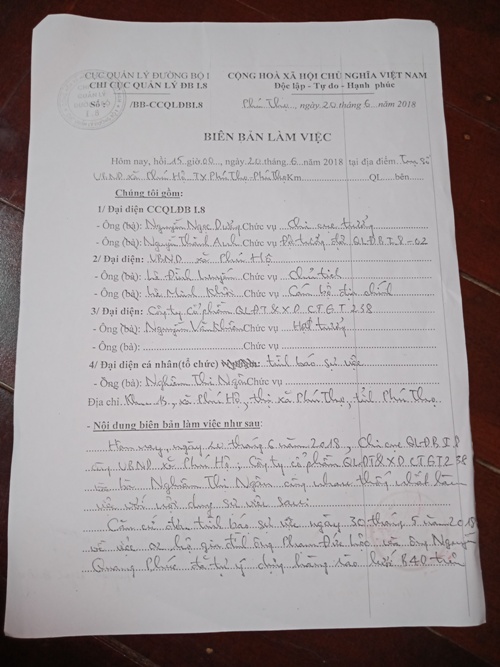 CỤC QUẢN LÝ ĐƯỜNG BỘ I
CHI CỤC QUẢN LÝ ĐB I.8
Số: /BB-CCQLĐBI.8
CỘNG HOÀ XÃ HỘI CHỦ NGHĨA VIỆT NAM
Độc lập - Tự do - Hạnh phúc
Phú Thọ, ngày 20 tháng 6 năm 2018
BIÊN BẢN LÀM VIỆC
Hôm nay, hồi 15 giờ 00, ngày 20 tháng 6 năm 2018 tại địa điểm: Trụ sở
UBND xã Phú Hộ, TX Phú Thọ, Phú Thọ Km QL bên
Chúng tôi gồm:
1/ Đại diện CCQLĐB I.8
- Ông (bà): Nguyễn Ngọc Dương Chức vụ Chi cục trưởng
- Ông (bà): Nguyễn Thành Anh Chức vụ Đội trưởng đội QLĐB I.8-02
2/ Đại diện: UBND xã Phú Hộ
- Ông (bà): Lê Đình Chức vụ Chủ tịch
- Ông (bà): Lê Minh Chức vụ Cán bộ địa chính
3/ Đại diện: Công ty cổ phần QLĐT&XD CTGT 238
- Ông (bà): Nguyễn Văn Chức vụ Hạt trưởng
- Ông (bà): Chức vụ
4/ Đại diện cá nhân(tổ chức) tỉnh báo sự việc
- Ông (bà): Nghiêm Thị Ngân Chức vụ
Địa chỉ: Khu 13, xã Phú Hộ, thị xã Phú Thọ, tỉnh Phú Thọ
- Nội dung biên bản làm việc như sau:
Hôm nay, ngày 20 tháng 6 năm 2018, Chi cục QLĐB I.8
cùng UBND xã Phú Hộ, Công ty cổ phần QLĐT&XD CTGT 238
và bà Nghiêm Thị Ngân cùng nhau thống nhất làm
việc với nội dung sự việc sau:
Căn cứ đơn tỉnh báo sự việc ngày 30 tháng 5 năm 2018
về việc hộ gia đình ông Phạm Đức Lộc và ông Nguyễn
Quang Phúc đã tự ý dựng hàng rào lưới B40 trên